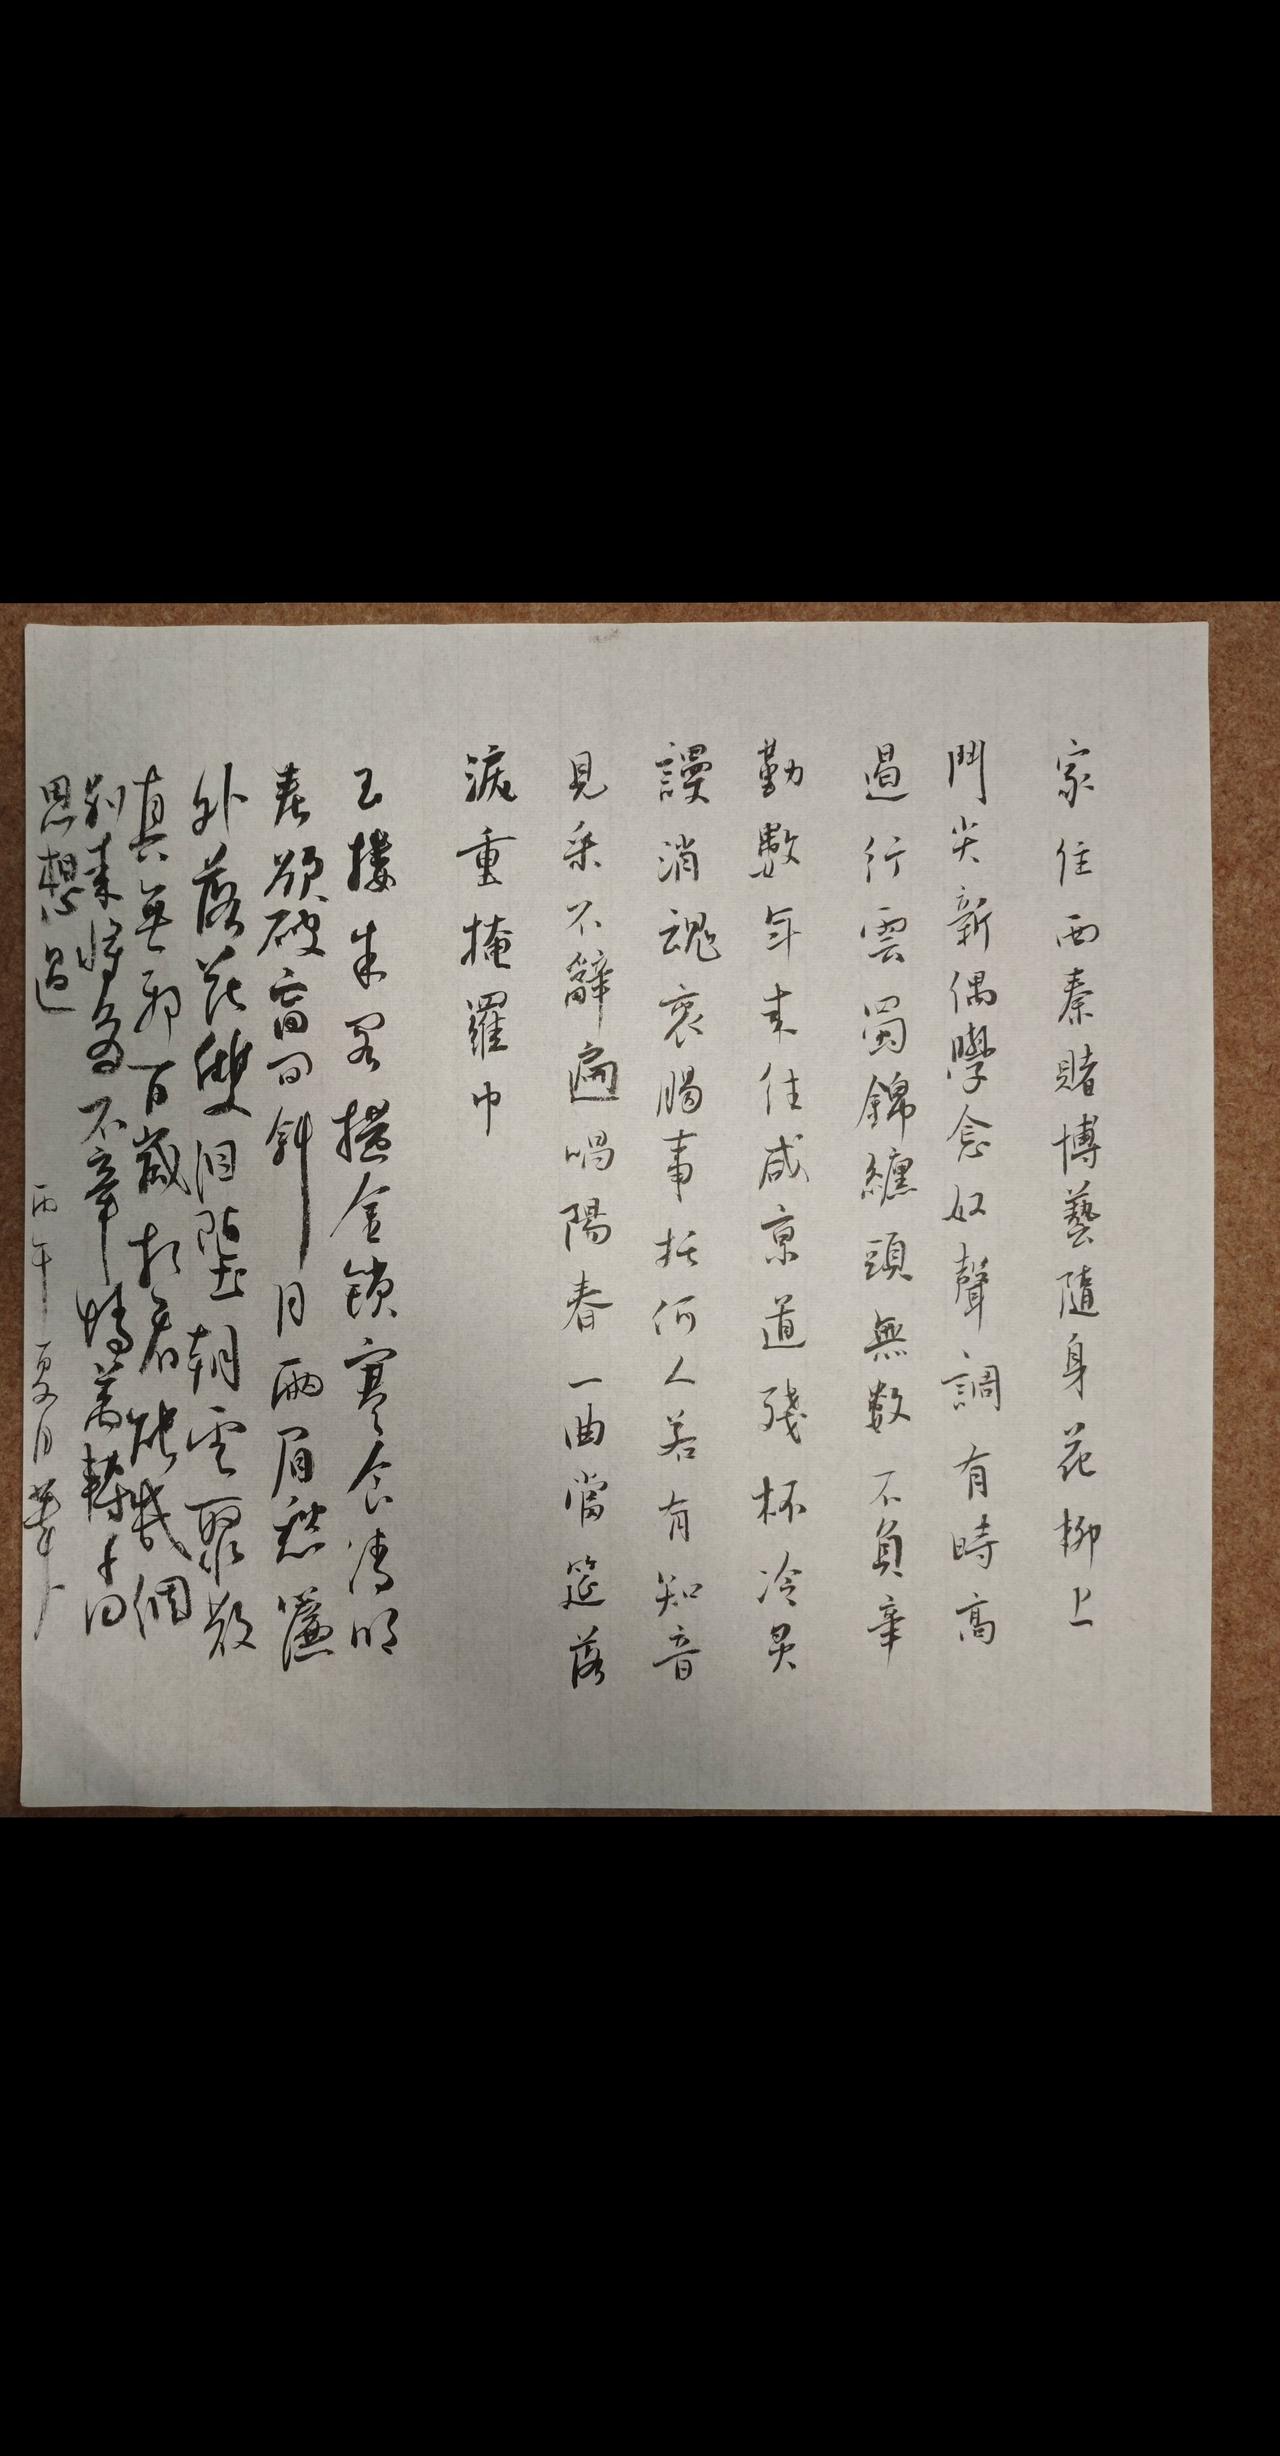 家住西秦賭博藝隨身花柳上
鬥尖新偶學念奴聲調有時高
過行雲蜀錦纏頭無數不負辛
勤數年來往咸京道殘杯冷炙
謾消魂衷腸事托何人若有知音
見采不辭遍唱陽春一曲當筵落
淚重掩羅巾
玉樓朱閣橫金鎖寒食清明
春欲破窗間斜月兩眉愁簾
外落花雙淚墮朝雲聚散
真無那百歲相看能幾個
別來將為不牽情萬轉千回
思想過
丙午夏月